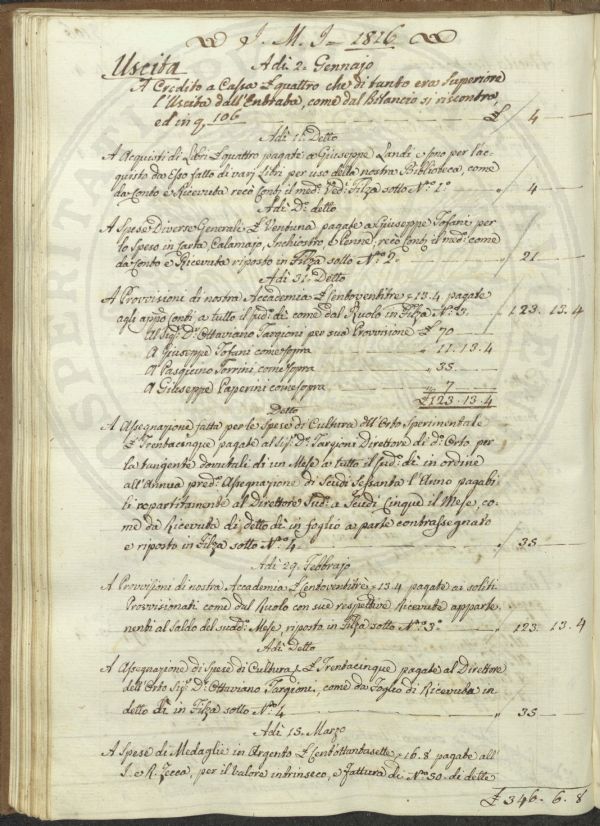 J. M. J. 1816
Uscita
Adi 2. Gennajo
A Credito a Cassa £ quattro che di tanto era Superiore
l'Uscita dell'Entrata, come dal Bilancio si riscontra,
ed in q. 106 £ 4
Adi 1º Detto
A Acquisti di Libri £ quattro pagate a Giuseppe Landi e sono per l'ac-
quisto da Esso fatto di varj Libri per uso della nostra Biblioteca, come
da Conto e Ricevuta recò Conti il med.º Ved.i Filza sotto N.º 1.º 4
Adi D.º detto
A Spese Diverse Generali £ Ventuna pagate a Giuseppe Tofani per
lo Speso in Carta, Calamajo, Inchiostro, e Penne; recò Conti il med.º come
da Conto e Ricevuta riposto in Filza sotto N.º 2. 21
Adi 31. Detto
A Provvisioni di nostra Accademia £ Centoventitre, 13.4 pagate
agli app.o Conti a tutto il sud.º dì come dal Ruolo in Filza N.º 3. 123. 13. 4
Al Sig.r D.r Ottaviano Targioni per sua Provvisione £ 70
A Giuseppe Tofani come sopra 11. 13. 4
A Pasquino Torrini come sopra 35
A Giuseppe Paperini come sopra 7
£ 123. 13. 4
Detto
A Assegnazione fatta per le Spese di Cultura dell'Orto Sperimentale
£ Trentacinque pagate al Sig.r D.r Targioni Direttore di d.º Orto per
la tangente dovutali di un Mese a tutto il sud.º dì in ordine
all'Annua pred.a Assegnazione di Scudi Sessanta l'Anno pagabi-
li repartitamente al Direttore Sud.º a Scudi Cinque il Mese, co-
me da Ricevuta di detto dì in foglio a parte contrassegnato
e riposto in Filza sotto N.º 4 35
Adi 29. Febbrajo
A Provvisioni di nostra Accademia £ Centoventitre, 13.4 pagate ai soliti
Provvisionati come dal Ruolo con sue respettive Ricevute apparte-
nenti al Saldo del sudd.º Mese, riposto in Filza sotto N.º 3.º 123. 13. 4
Adi Detto
A Assegnazione di Spese di Cultura, £ Trentacinque pagate al Direttore
dell'Orto Sig.r D.r Ottaviano Targioni, come da Foglio di Ricevuta in
detto dì in Filza sotto N.º 4 35
Adi 15. Marzo
A Spese di Medaglie in Argento £ Centottantasette, 16.8 pagate all'
I. e R. Zecca, per il Valore intrinseco, e fattura di N.º 50. di dette
£ 346. 6. 8